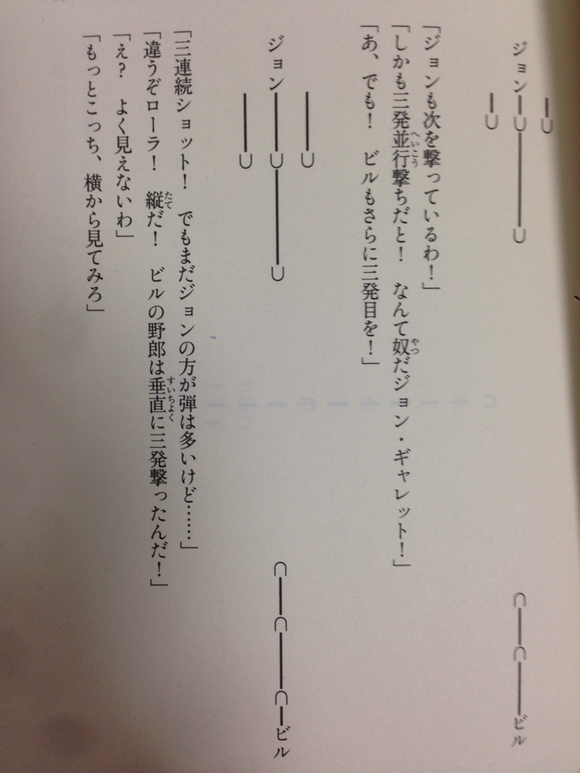 ジョン　ビル
「ジョンも次を撃っているわ！」
へいこう　やつ
「しかも三発並行撃ちだと！　なんて奴だジョン・ギャレット！」
「あ、でも！　ビルもさらに三発目を！」
ジョン　ビル
「三連続ショット！　でもまだジョンの方が弾は多いけど……」
たて　すいちよく
「違うぞローラ！　縦だ！　ビルの野郎は垂直に三発撃ったんだ！」
「え？　よく見えないわ」
「もっとこっち、横から見てみろ」